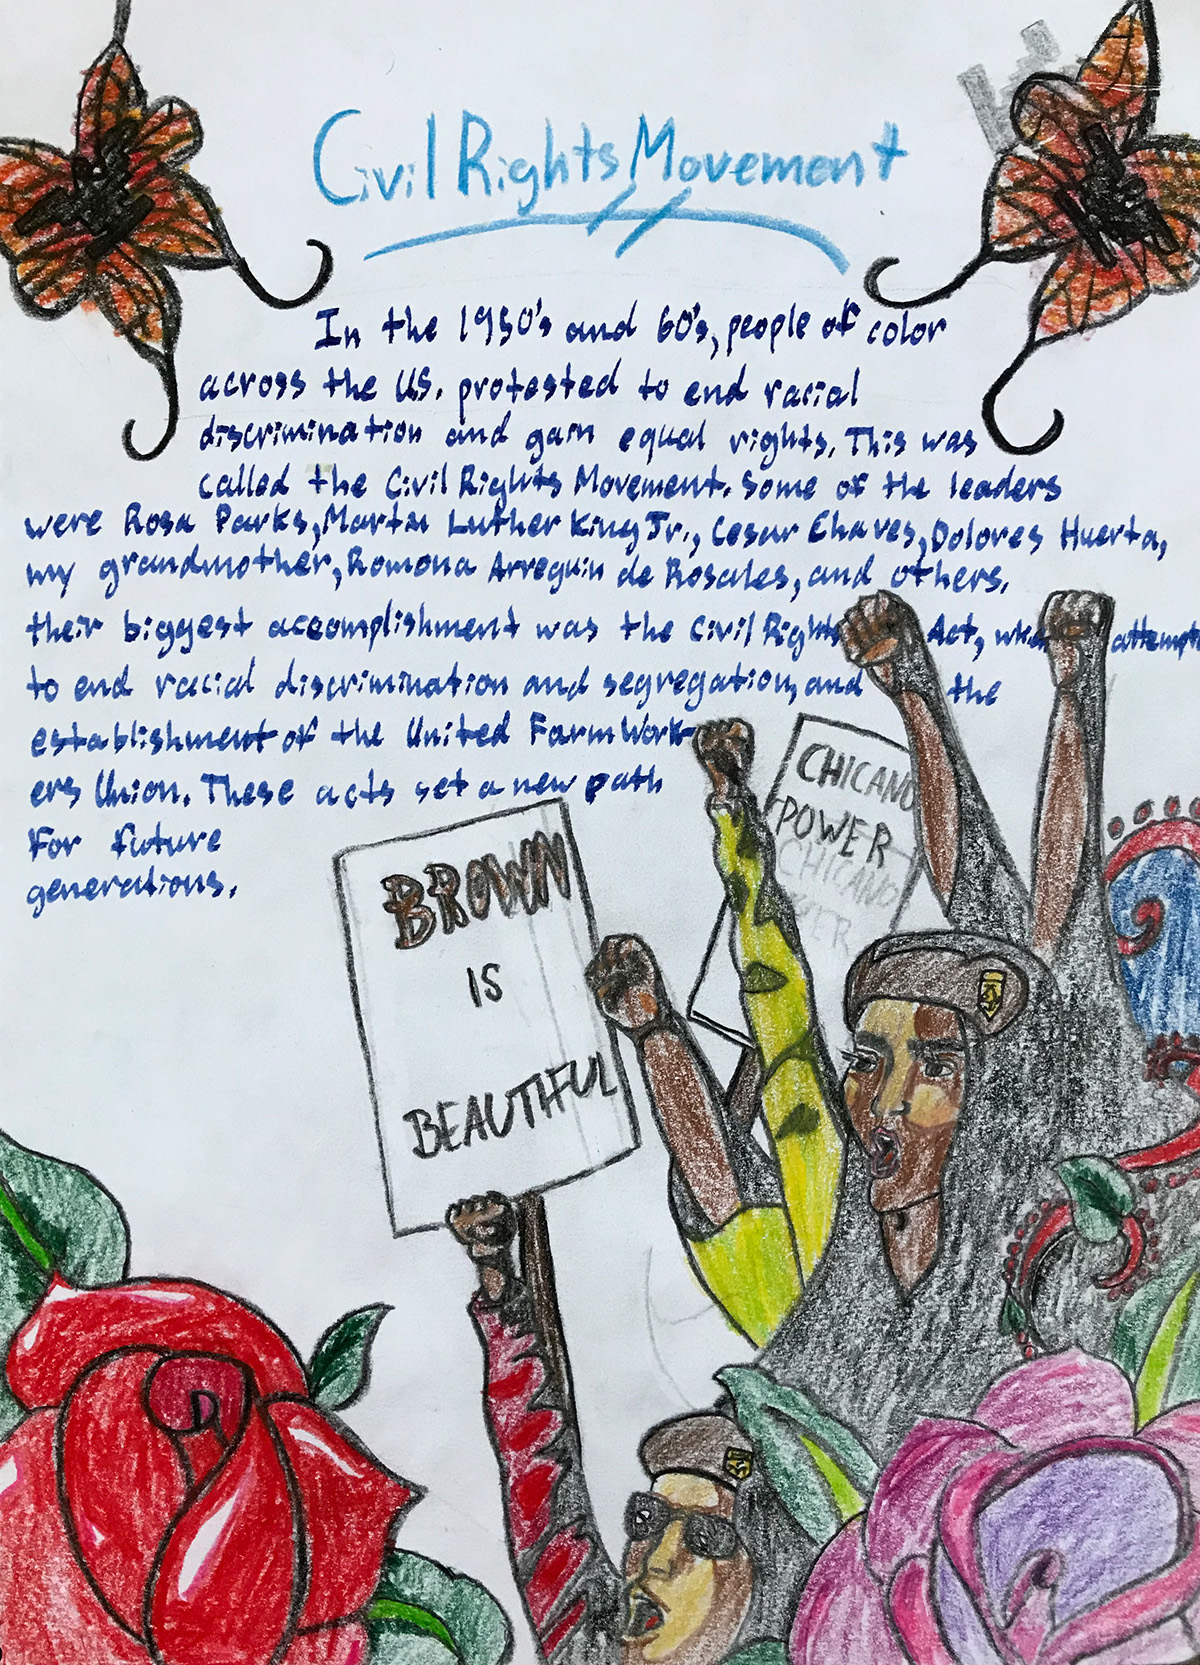 Civil Rights Movement
In the 1950's and 60's, people of color
across the US. protested to end racial
discrimination and gain equal rights. This was
called the Civil Rights Movement. Some of the leaders
were Rosa Parks, Martin Luther King Jr., Cesar Chaves, Dolores Huerta,
my grandmother, Romona Arreguin de Rosales, and others.
their biggest accomplishment was the Civil Rights Act, attempt
to end racial discrimination and segregation, and the
establishment of the United Farm Work
ers Union. These acts set a new path
For future
generations.
CHICANO
POWER
CHICANO
BROWN
IS
BEAUTIFUL